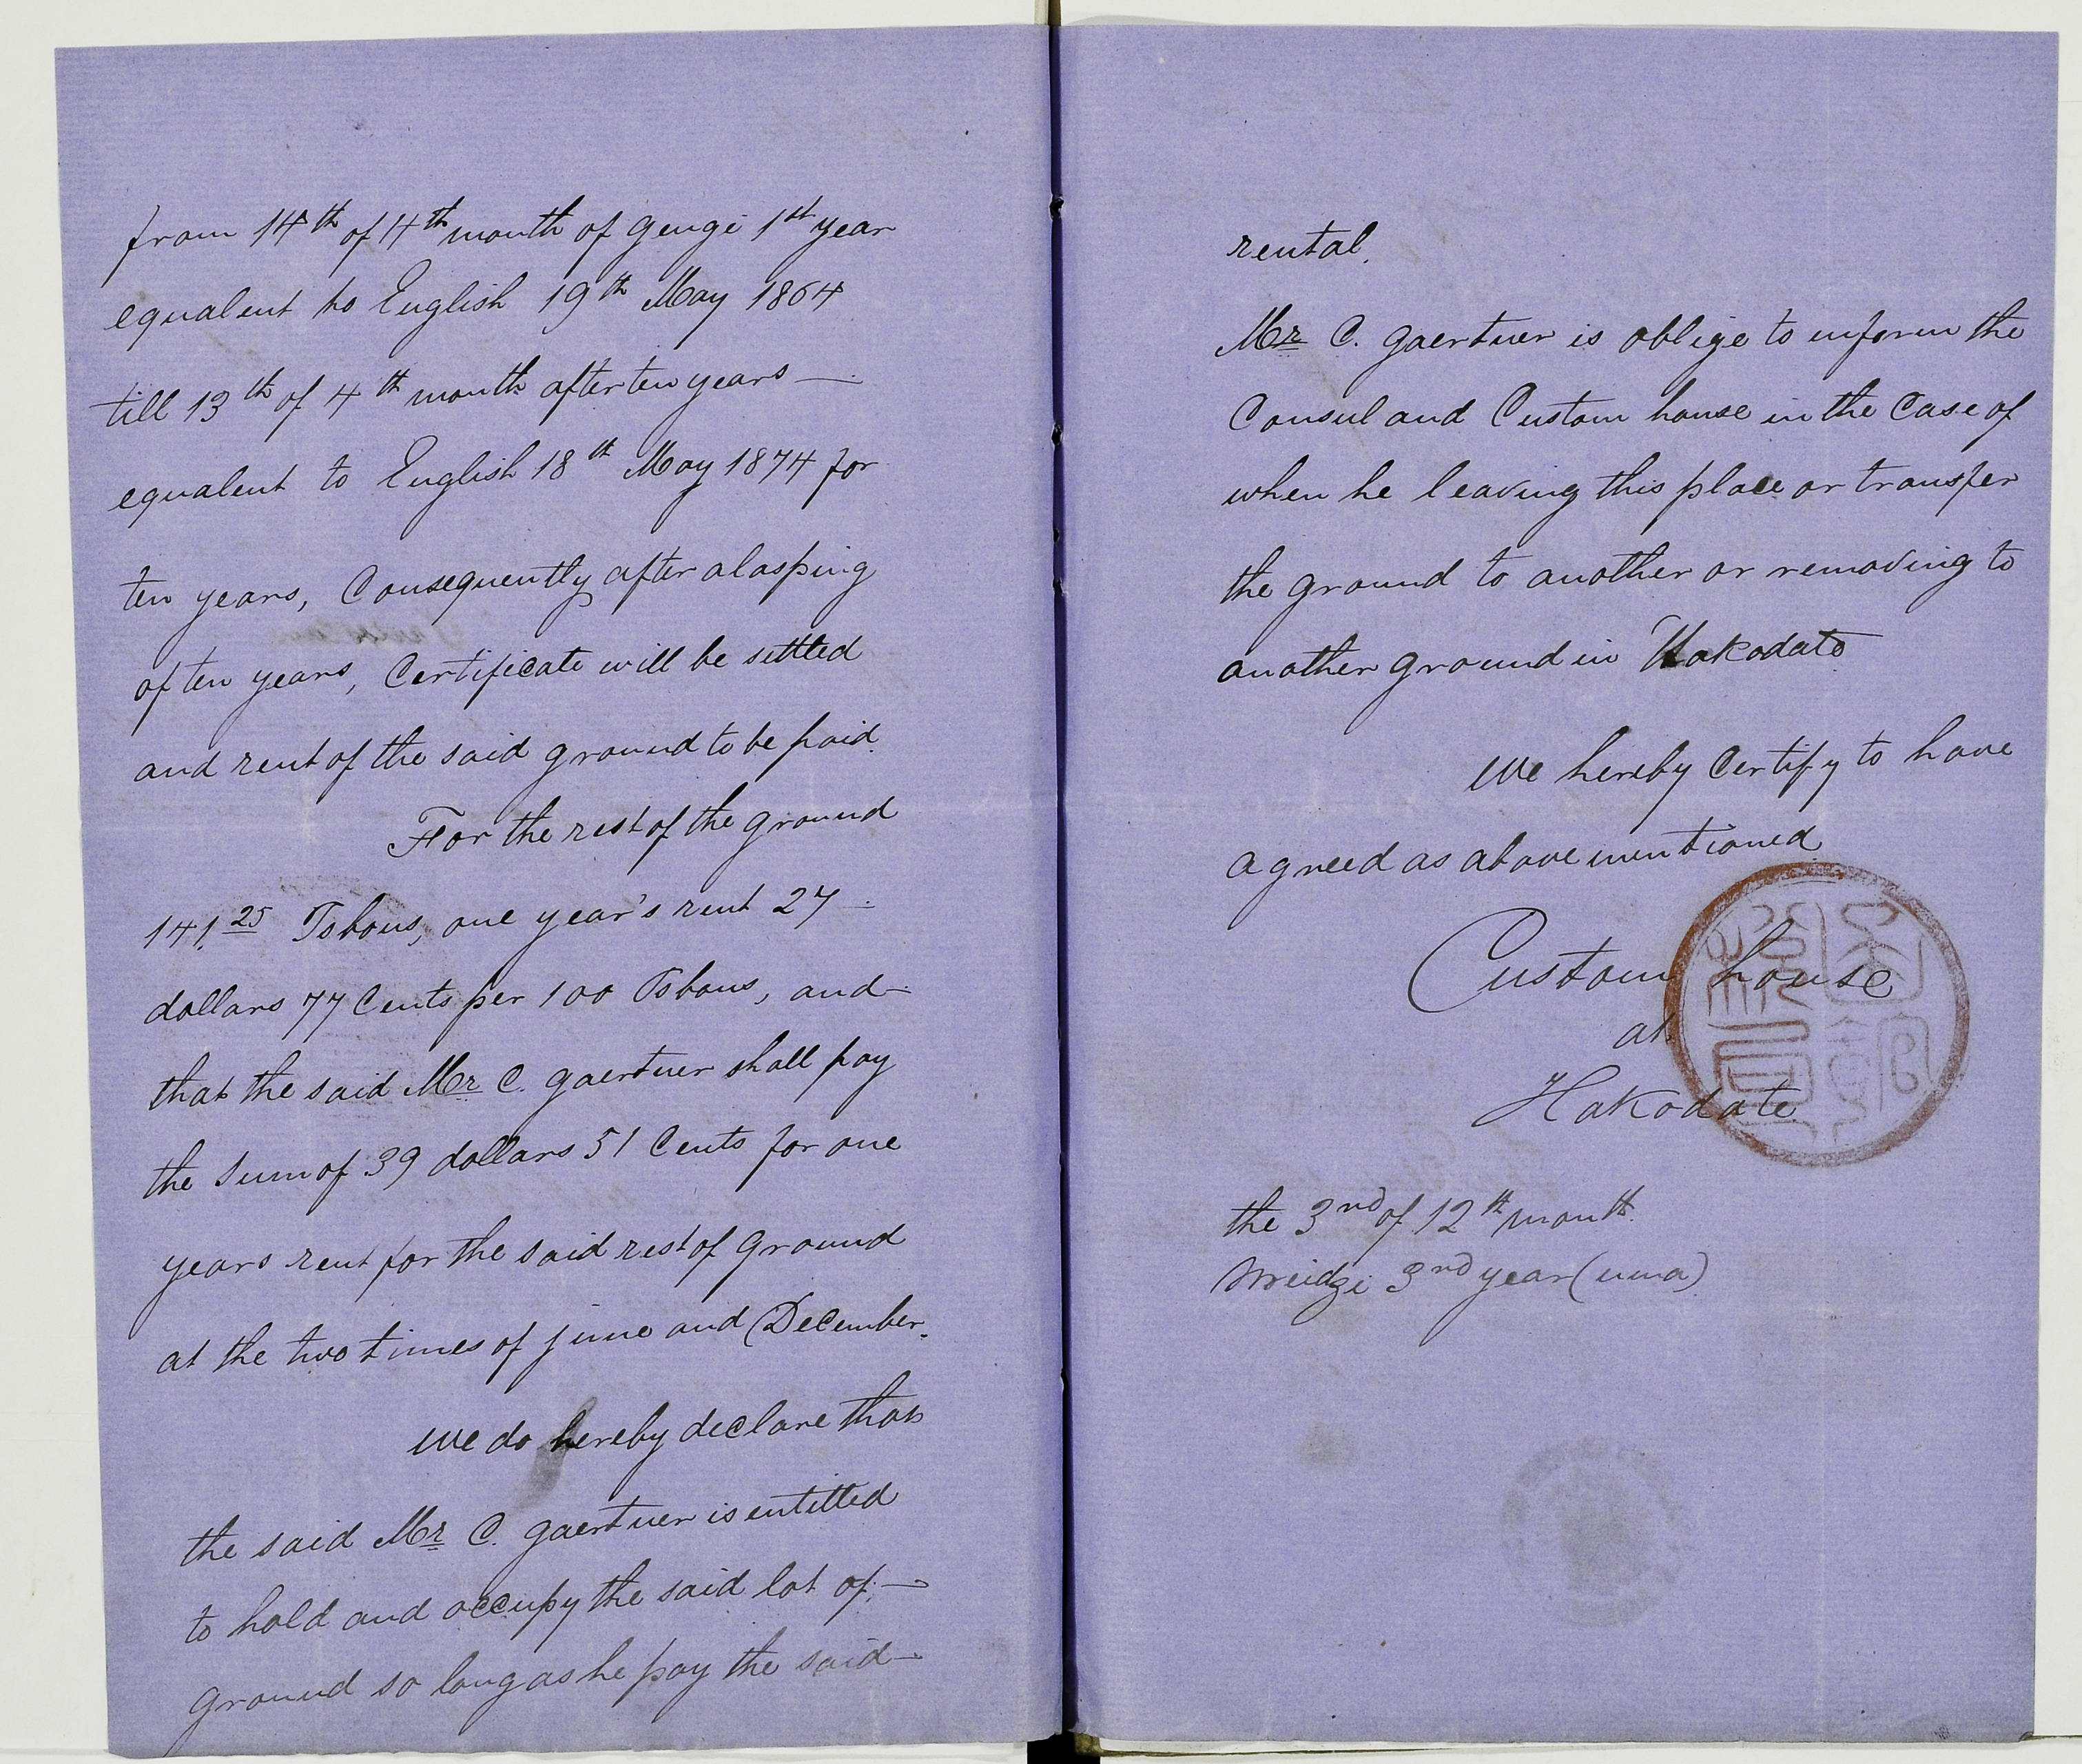 from 14th of 4th month of gengi 1st year
equalent to English 19th May 1864
till 13th of 4th month after ten years —
equalent to English 18th May 1874 for
ten years, Consequently after alasping
of ten years, Certificate will be settled
and rent of the said ground to be paid.
For the rest of the ground
141.25 Tsbous, one year's rent 27 —
dollars 77 Cents per 100 Tsbous, and —
that the said Mr C. gaertner shall pay
the Sum of 39 dollars 51 Cents for one
years rent for the said rest of ground
at the two times of june and December.
We do hereby declare that
the said Mr C. gaertner is entitled
to hold and occupy the said lot of —
ground so long as he pay the said —
rental.
Mr C. gaertner is oblige to inform the
Consul and Custom house in the Case of
when he leaving this place or transfer
the ground to another or removing to
another ground in Hakodate
We hereby Certify to have
agreed as above mentioned
Custom house
at
Hakodate
the 3rd of 12th month.
Meidgi 3rd year (uma)